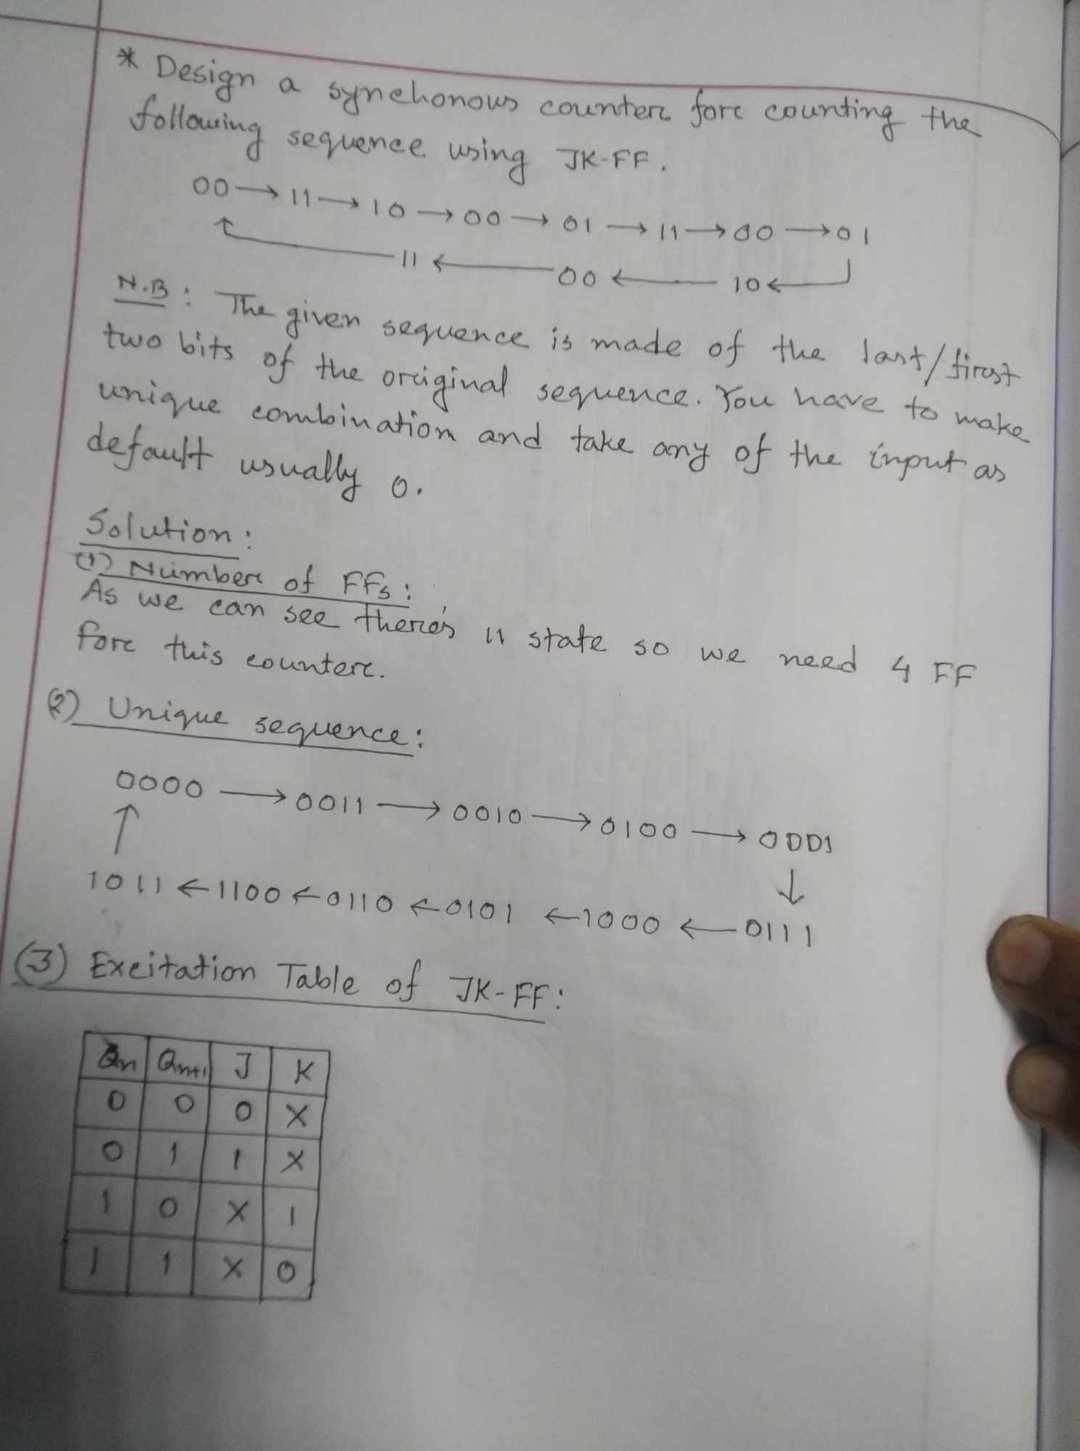 * Design a synchonous counter fore counting the
following sequence using JK-FF.
00 → 11 → 10 → 00 → 01 → 11 → 00 → 01
↑ 11 ← 00 ← 10 ←
N.B : The given sequence is made of the last/first
two bits of the original sequence. You have to make
unique combination and take any of the input as
default usually 0.
Solution :
(1) Number of FFs :
As we can see there's 11 state so we need 4 FF
fore this counter.
(2) Unique sequence :
0000 → 0011 → 0010 → 0100 → 0001
↑ ↓
1011 ← 1100 ← 0110 ← 0101 ← 1000 ← 0111
(3) Excitation Table of JK-FF :
Qn Qn+1 J K
0 0 0 X
0 1 1 X
1 0 X 1
1 1 X 0